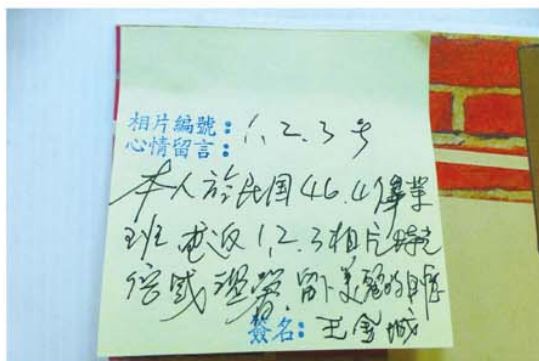 相片編號：1,2,3号
心情留言：
本人於民国46.4畢業
班 1,2,3相片
倍感 留下美麗的
簽名：王金城